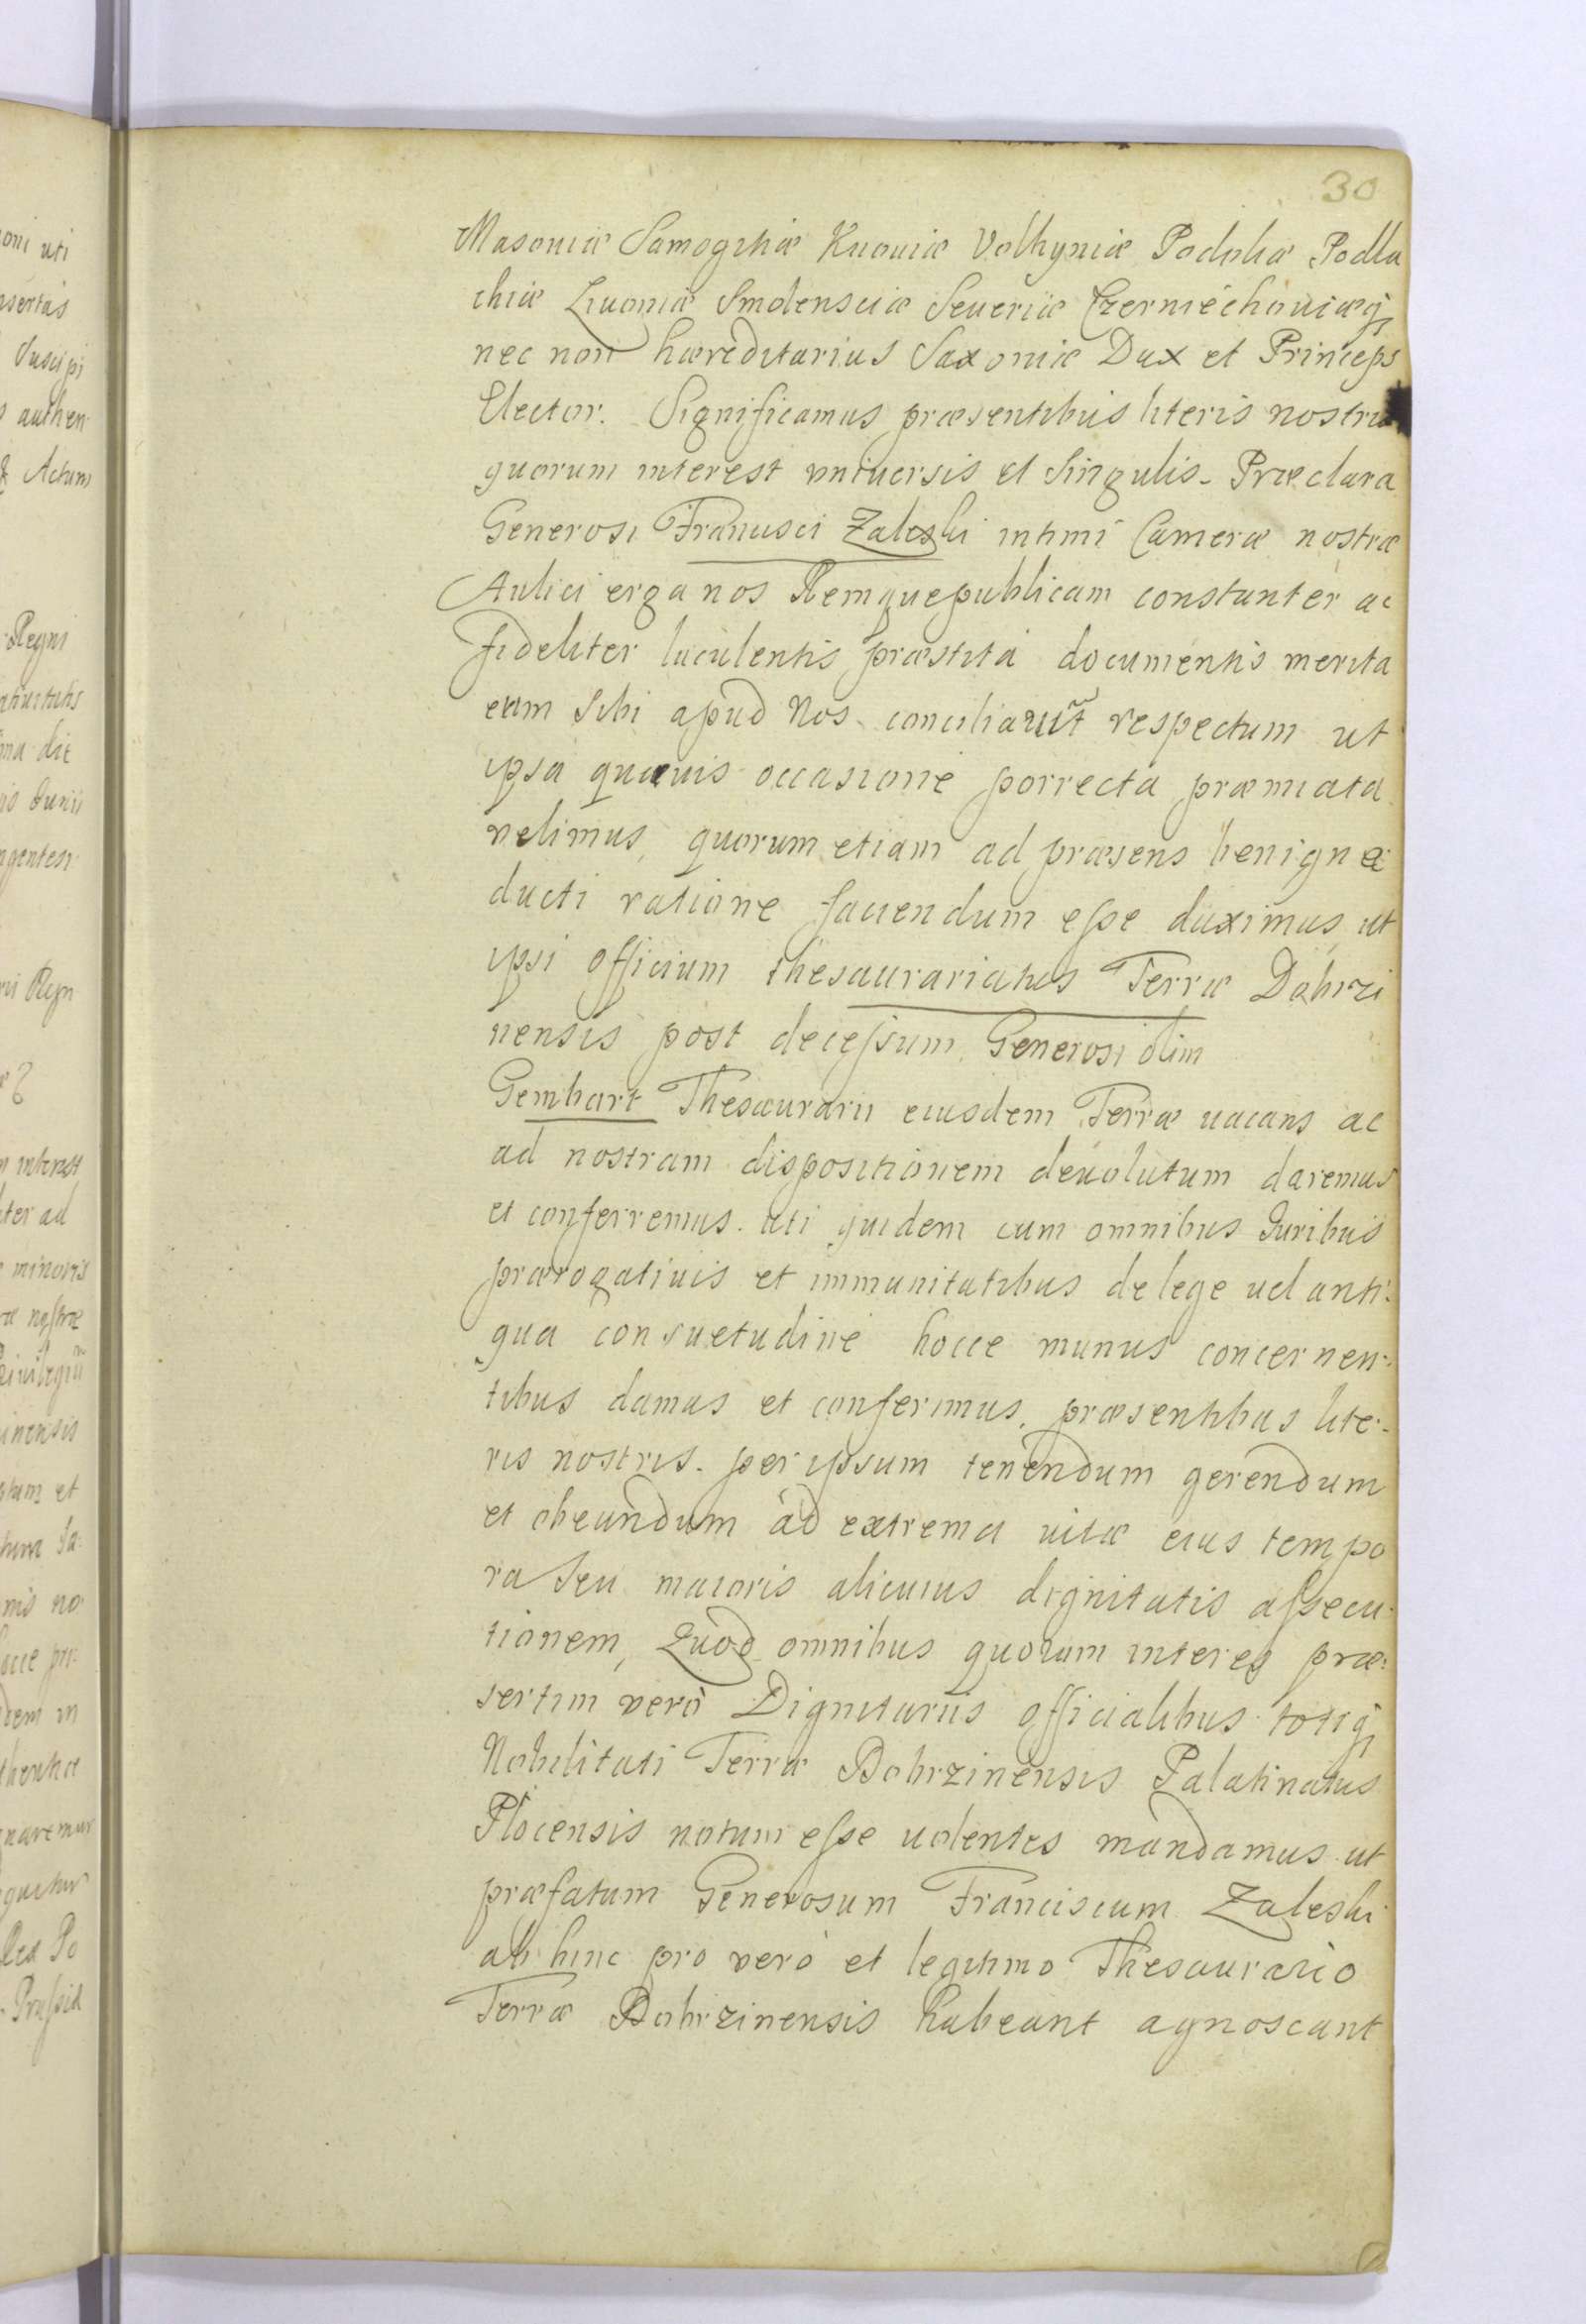 30
Masoniæ Samogitiæ Kuoviæ Volhyniæ Podoliæ Podla
chiæ Livoniæ Smolensciæ Severiæ Czerniechoviæq;
nec non hæreditarius Saxoniæ Dux et Princeps
Elector. Significamus præsentibus literis nostris
quorum interest vniuersis et Singulis. Præclara
Generosi Francisci Zaleski intimi Cameræ nostræ
Aulici erga nos Remquepublicam constanter ac
fideliter luculentis præstita documentis merita
eum Sibi apud Nos conciliarũt respectum ut
ipsa quævis occasione porrecta præmiata
velimus, quorum etiam ad præsens benigna
ducti ratione faciendum esse duximus, ut
ipsi officium thesaurariatus Terræ Dobrzi
nensis post decessum Generosi olim
Gembart Thesaurarii eiusdem Terræ uacans ac
ad nostram dispositionem deuolutum daremus
et conferremus. uti quidem cum omnibus Juribus
prærogatiuis et immunitatibus de lege uel anti:
qua consuetudine hocce munus concernen:
tibus damus et conferimus. præsentibus lite:
ris nostris. per ipsum tenendum gerendum
et obeundum ad extrema uitæ eius tempo
ra Seu maioris alicuius dignitatis assecu:
tionem, Quod omnibus quorum interes præ:
sertim verò Dignitariis officialibus totiq;
Nobilitati Terræ Dobrzinensis Palatinatus
Plocensis notum esse uolentes mandamus ut
præfatum Generosum Franciscum Zaleski
ab hinc pro verò et legitimo Thesaurario
Terræ Dobrzinensis habeant agnoscant